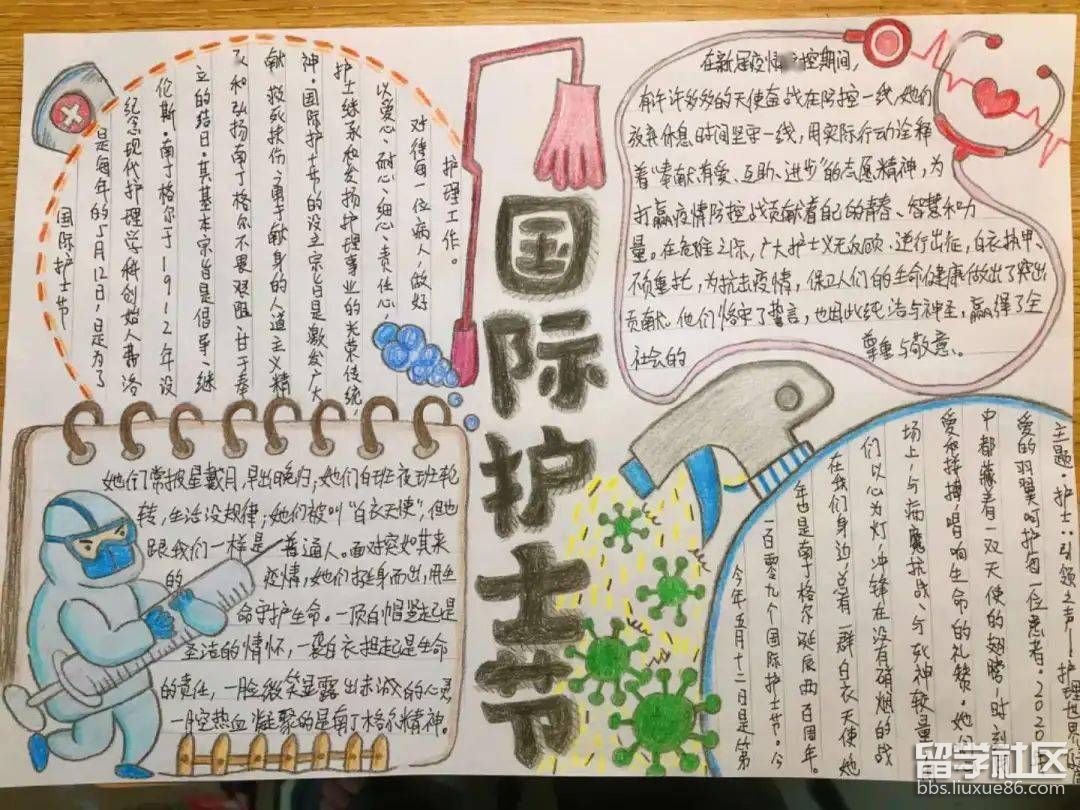 国际护士节
是每年的5月12日,是为了
纪念现代护理学科创始人弗洛
伦斯·南丁格尔于1912年设
立的结日·其基本宗旨是倡导、继
承和弘扬南丁格尔不畏艰险、甘于奉
献、救死扶伤、勇于献身的人道主义精
神·国际护士节的设立宗旨是激发广大
护士继承和发扬护理事业的光荣传统,
以爱心、耐心、细心、责任心,
对待每一位病人做好
护理工作。
国际护士节
在新冠疫情控期间,
有许许多多的天使奋战在防控一线,她们
放弃休息时间坚守一线,用实际行动诠释
着“奉献有爱、互助、进步”的志愿精神,为
打赢疫情防控战贡献着自己的青春、智慧和力
量。在危难之际,广大护士义无反顾、逆行出征,白衣执甲、
不负重托,为抗击疫情,保卫人们的生命健康做出了突出
贡献。他们恪守了誓言,也因此纯洁与神圣,赢得了全
社会的 尊重与敬意。
她们常披星戴月,早出晚归;她们白班夜班轮
转,生活没规律;她们被叫“白衣天使”,但也
跟我们一样是普通人。面对突如其来
的疫情,她们挺身而出,用生
命守护生命。一顶白帽竖起是
圣洁的情怀,一袭白衣担起是生命
的责任,一脸微笑显露出赤诚的心灵,
一腔热血凝聚的是南丁格尔精神。
今年五月十二日是第
一百零九个国际护士节。今
年也是南丁格尔诞辰两百周年。
在我们身边,总有一群白衣天使,她
们以心为灯,冲锋在没有硝烟的战
场上,与病魔抗战、与死神较量
爱和拼搏,唱响生命的礼赞。她们
中都藏着一双天使的翅膀,时刻
爱的羽翼呵护每一位患者。2020年
主题·护士:引领之声——护理世界
留学社区
bbs.liuxue86.com